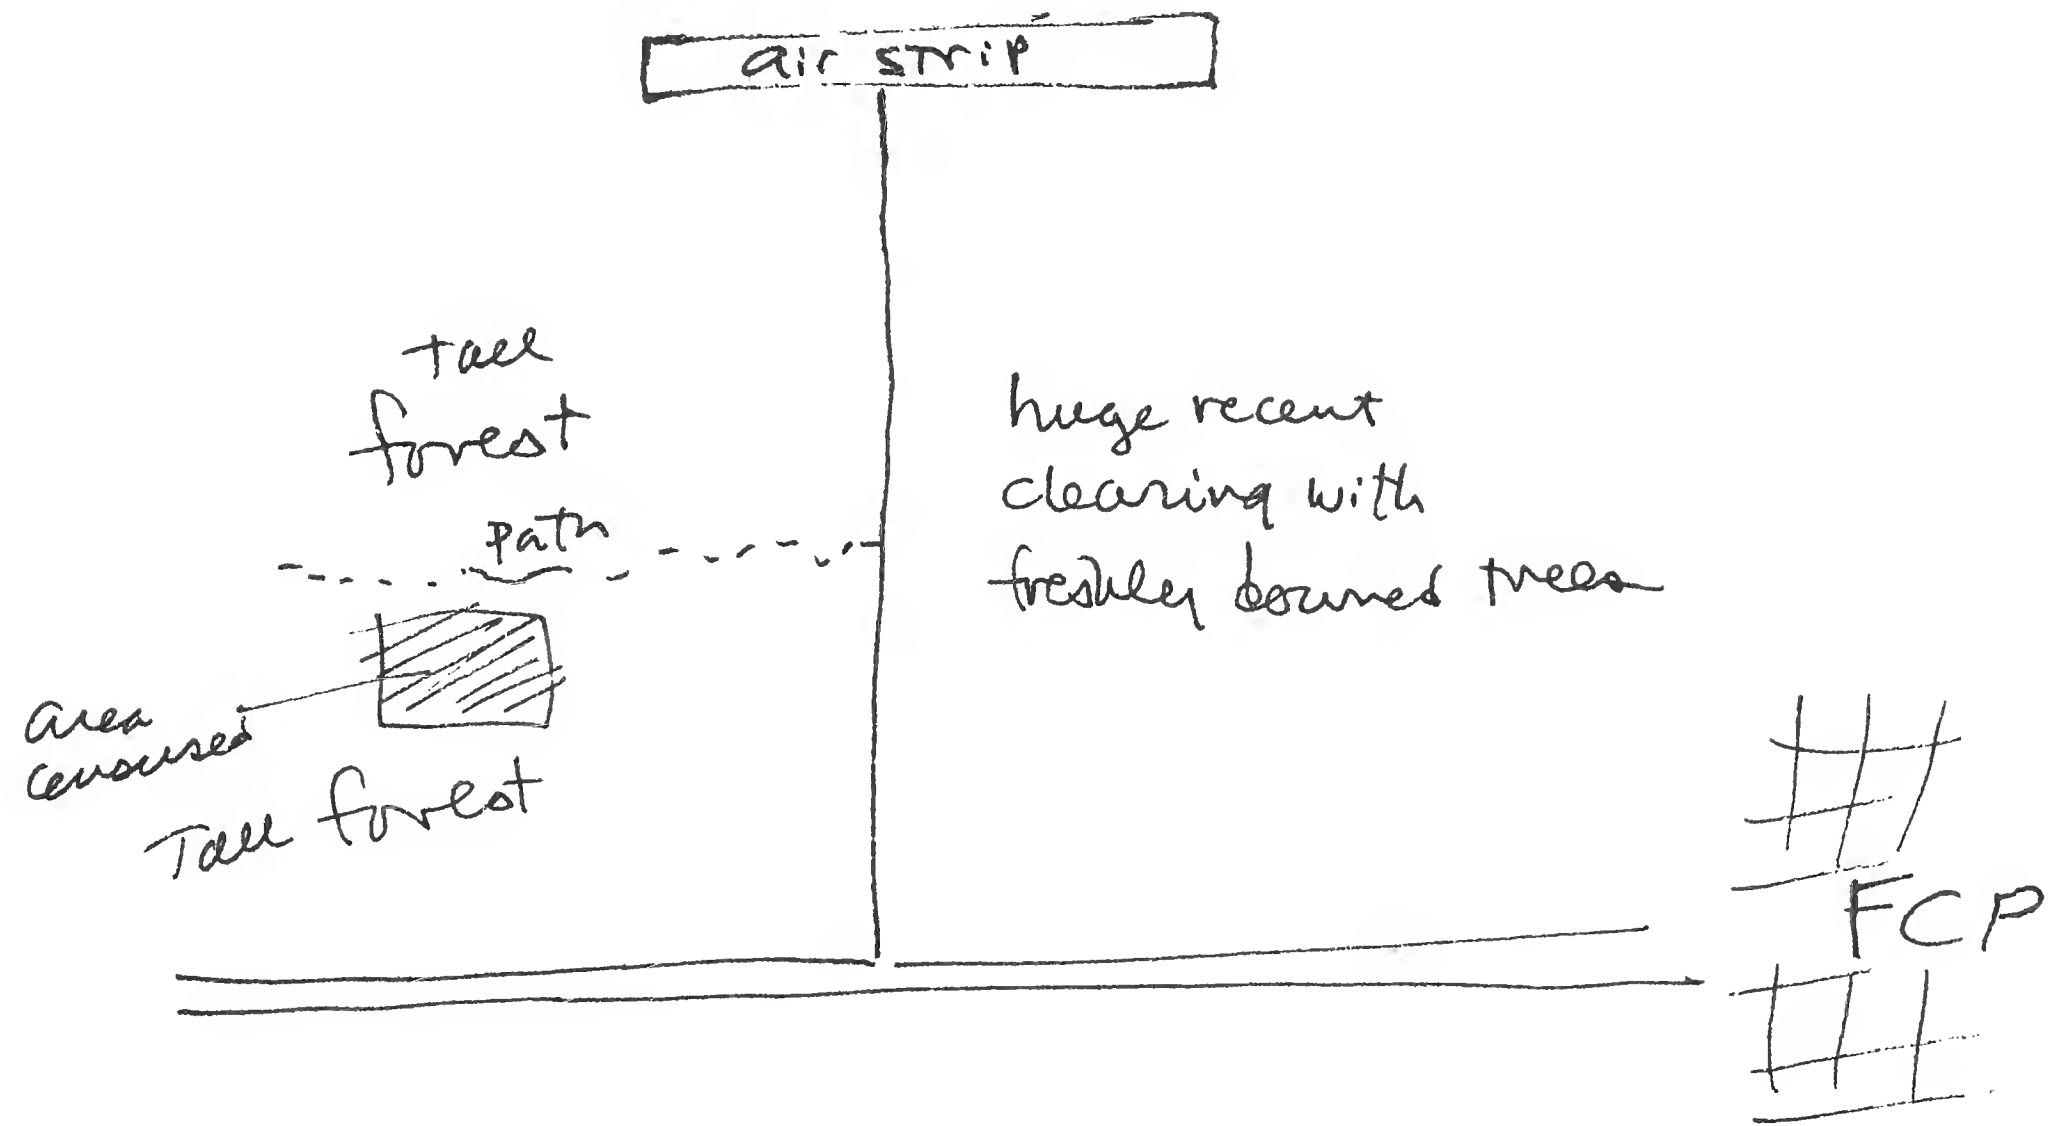 air strip
tall
forest
path
huge recent
clearing with
freshly downed trees
area
censused
Tall forest
FCP